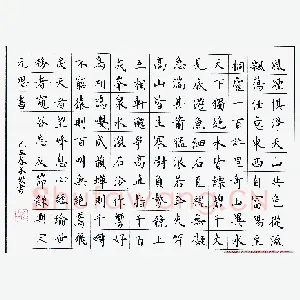 風煙俱淨天山共色從流
飄蕩任意東西自富陽至
桐廬一百許里奇山異水
天下獨絕水皆縹碧千丈
見底游魚細石直視無礙
急湍甚箭猛浪若奔夾岸
高山皆生寒樹負勢競上
互相軒邈爭高直指千百
成峯泉水激石泠泠作響好
鳥相鳴嚶嚶成韻蟬則千轉
不窮猿則百叫無絕鳶飛
戾天者望峰息心經綸世
務者窺谷忘反節錄與朱
元思書